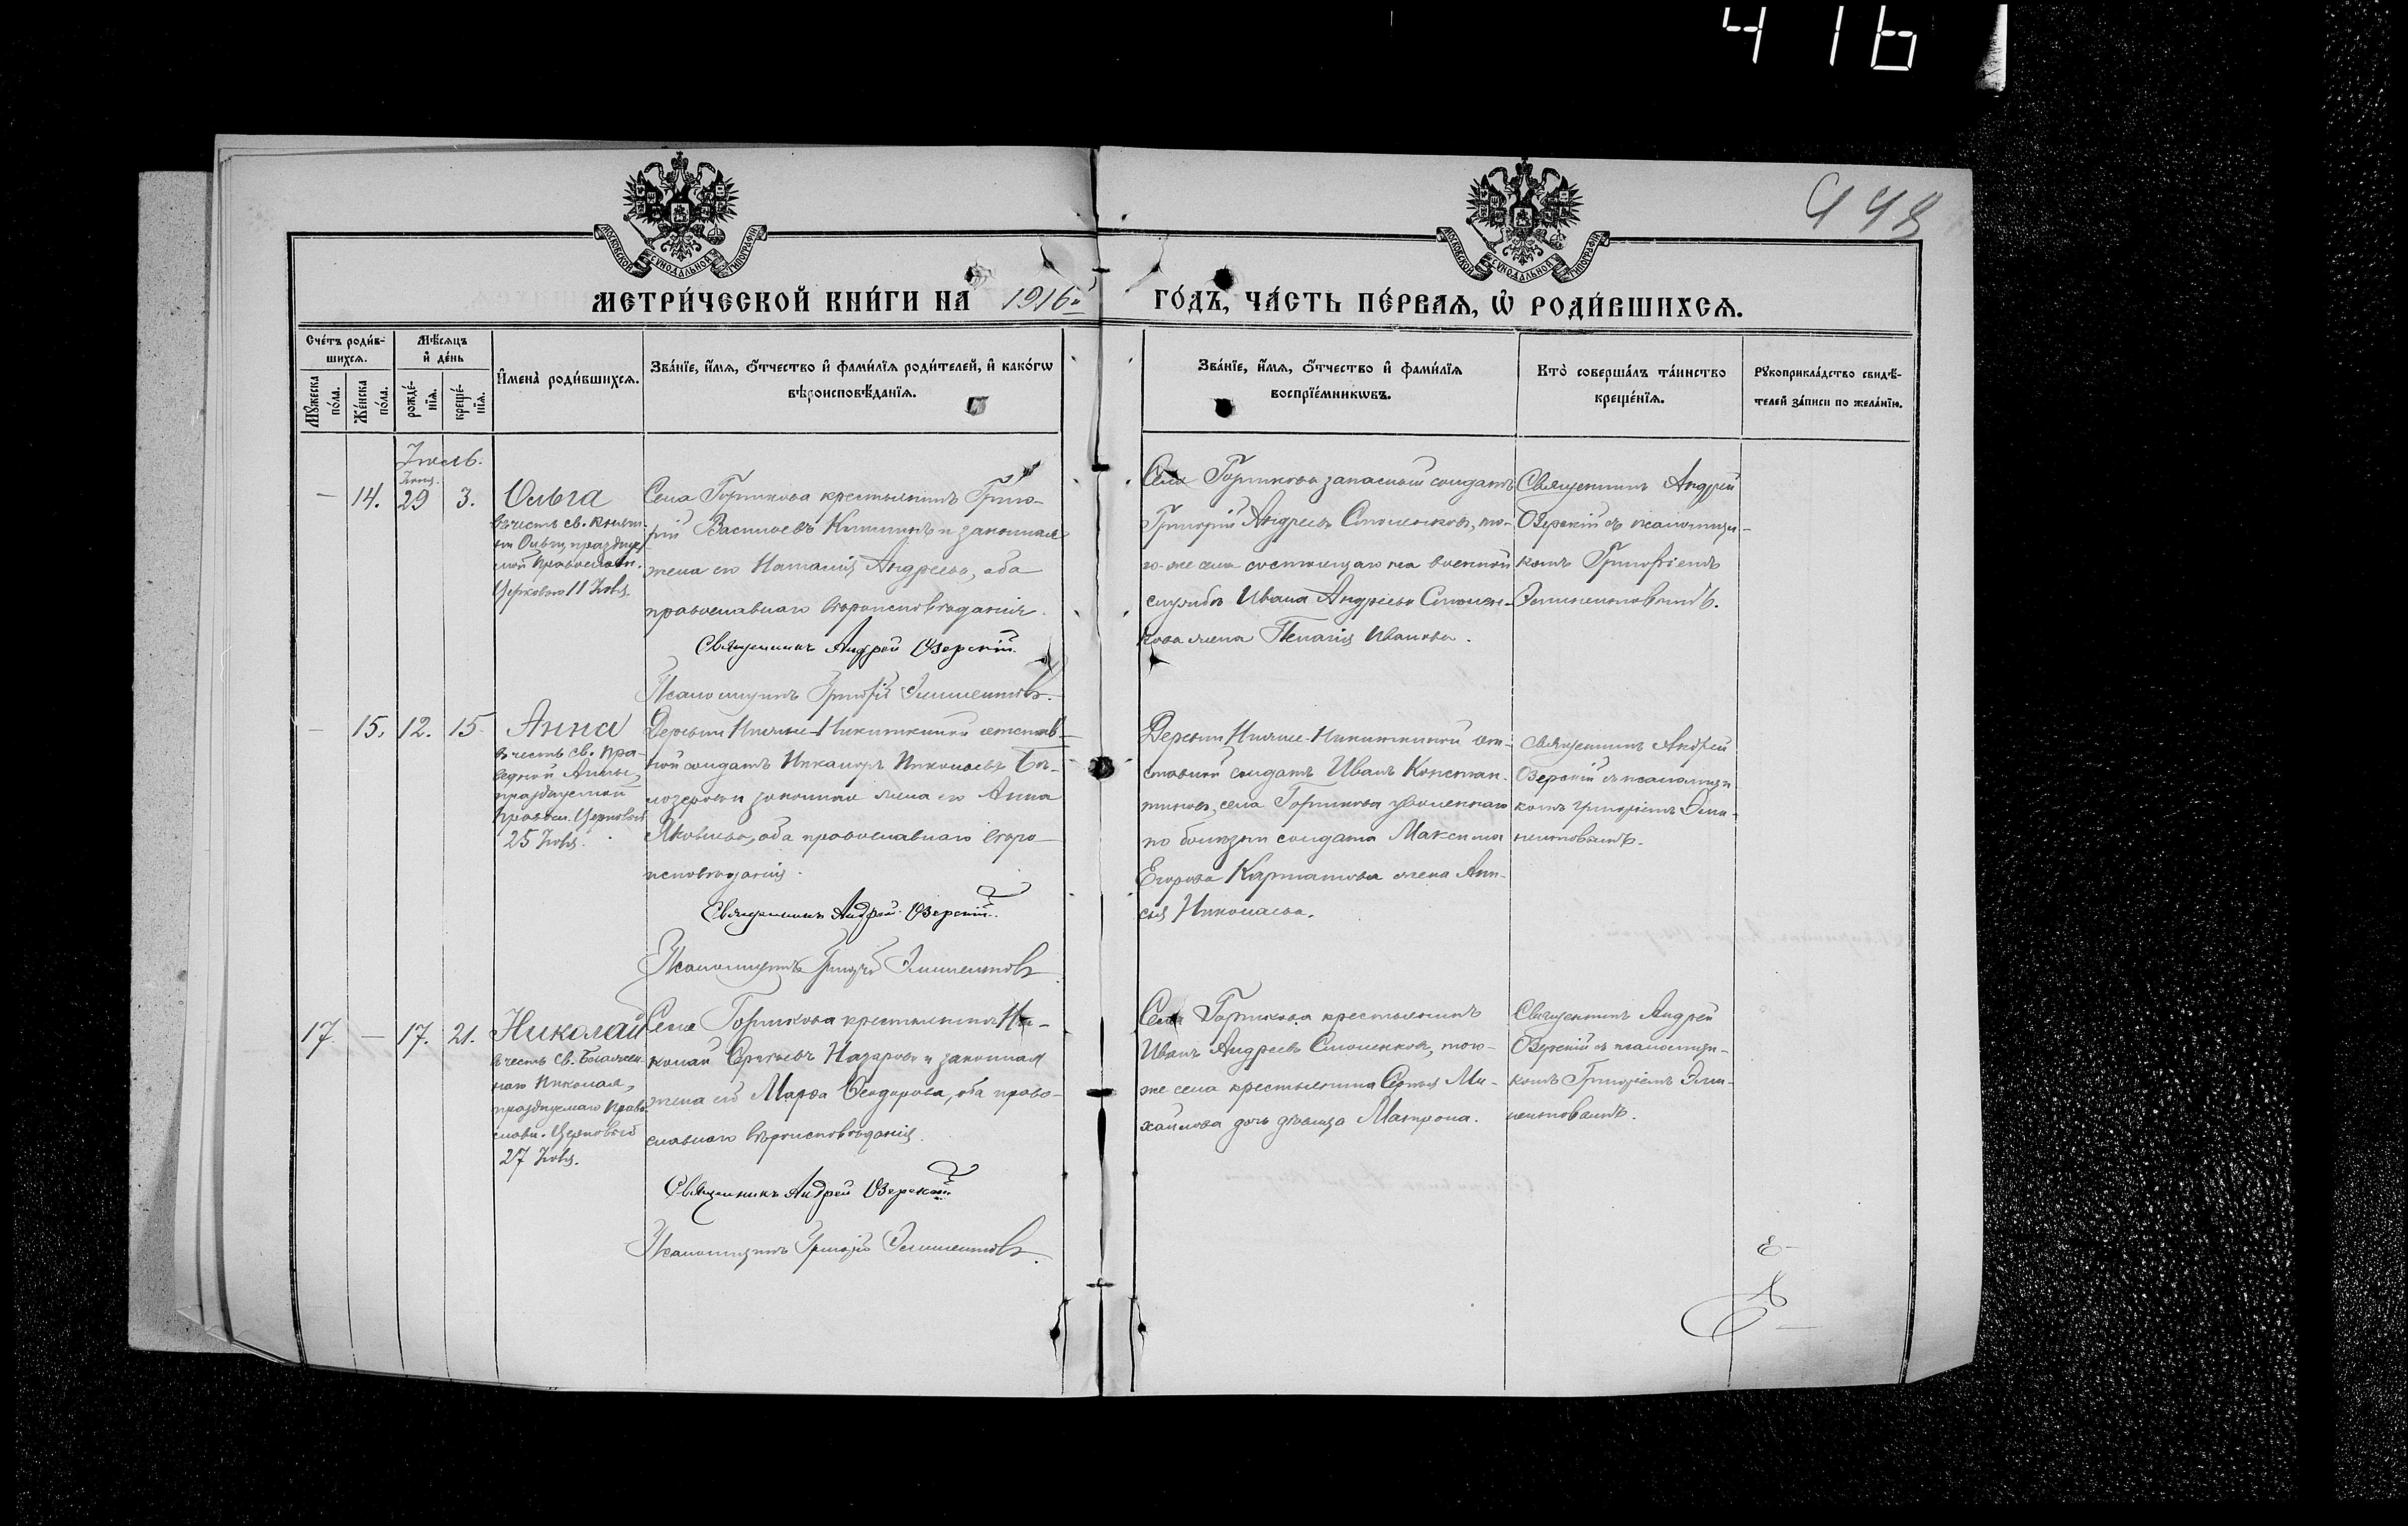 416
448
МОСКОВСКОЙ СУНОДАЛЬНОЙ ТИПОГРАФІИ
МОСКОВСКОЙ СУНОДАЛЬНОЙ ТИПОГРАФІИ
МЕТРИ́ЧЕСКОЙ КНИ́ГИ НА 1916й ГО́ДЪ, ЧА́СТЬ ПЕ́РВАѦ, Ѡ҆ РОДИ́ВШИХСѦ.
Сче́тъ роди́в-
шихсѧ.
Мѣ́сѧцъ
и҆ де́нь
Мꙋ́жеска
по́ла.
Же́нска
по́ла.
рожде́-
нїѧ.
креще́-
нїѧ.
И҆мена̀ роди́вшихсѧ.
Зва́нїе, и҆́мѧ, ѻ҆́тчество и҆ фами́лїѧ роди́телей, и҆ како́гѡ
вѣроисповѣ́данїѧ.
Зва́нїе, и҆́мѧ, ѻ҆́тчество и҆ фами́лїѧ
воспрїе́мникѡвъ.
Кто̀ соверша́лъ та́инство
креще́нїѧ.
Рꙋкоприкла́дство свидѣ́-
телей за́писи по жела́нїю.
Іюль.
Іюня.
— 14. 29 3. Ольга
въ честь св. Княги-
ни Ольги, празднуе-
мой Православн.
Церковью 11 Іюля.
Села Горшкова крестьянинъ Григо-
рій Васильевъ и законная
жена его Наталія Андреева, оба
православнаго вѣроисповѣданія.
Священникъ Андрей Озерскій.
Псаломщикъ Григорій
Села Горшкова запасный солдатъ
Григорій Андреевъ Смоленковъ, то-
го-же села состоящаго на военной
службѣ Ивана Андреева Смолен-
кова жена Пелагія Иванова.
Священникъ Андрей
Озерскій съ псаломщи-
комъ Григоріемъ
— 15. 12. 15 Анна
въ честь св. Пра-
ведной Анны,
празднуемой
Правосл. Церковью
25 Іюля.
Деревни Никиткиной отстав-
ной солдатъ Никаноръ Николаевъ Бѣ-
лозеровъ и законная жена его Анна
Яковлева, оба православнаго вѣро-
исповѣданія.
Священникъ Андрей Озерскій.
Псаломщикъ Григорій
Деревни Никиткиной от-
ставной солдатъ Иванъ Констан-
тиновъ, села Горшкова уволеннаго
по болѣзни солдата Максима
Егорова жена Ани-
сія Николаева.
Священникъ Андрей
Озерскій съ псаломщи-
комъ Григоріемъ
17. — 17. 21. Николай
въ честь св. Блажен-
наго Николая,
празднуемаго Право-
славн. Церковью
27 Іюля.
Села Горшкова крестьянинъ Ни-
колай Сергѣевъ Назаровъ и законная
жена его Марѳа Ѳеодорова, оба право-
славнаго вѣроисповѣданія.
Священникъ Андрей Озерскій.
Псаломщикъ Григорій
Села Горшкова крестьянинъ
Иванъ Андреевъ Смоленковъ, того-
же села крестьянина Сергѣя Ми-
хайлова дочь дѣвица Матрона.
Священникъ Андрей
Озерскій съ псаломщи-
комъ Григоріемъ